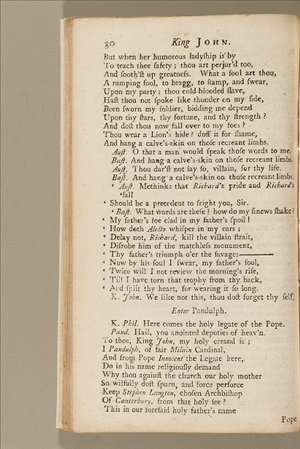 80 King JOHN.
But when her humorous ladyſhip is by
To teach thee ſafety; thou art perjur'd too,
And ſooth'ſt up greatneſs. What a fool art thou,
A ramping fool, to bragg, to ſtamp, and ſwear,
Upon my party; thou cold-blooded ſlave,
Haſt thou not ſpoke like thunder on my ſide,
Been ſworn my ſoldier, bidding me depend
Upon thy ſtars, thy fortune, and thy ſtrength?
And doſt thou now fall over to my foes?
Thou wear a Lion's hide? doff it for ſhame,
And hang a calve's-skin on thoſe recreant limbs.
Auſt. O that a man would ſpeak thoſe words to me.
Baſt. And hang a calve's-skin on thoſe recreant limbs.
Auſt. Thou dar'ſt not ſay ſo, villain, for thy life.
Baſt. And hang a calve's-skin on thoſe recreant limbs.
' Auſt. Methinks that Richard's pride and Richard's
'fall
' Should be a precedent to fright you, Sir.
' Baſt. What words are theſe? how do my ſinews ſhake!
' My father's foe clad in my father's ſpoil!
' How doth Alecto whiſper in my ears;
' Delay not, Richard, kill the villain ſtrait,
' Diſrobe him of the matchleſs monument,
' Thy father's triumph o'er the ſavages———
' Now by his ſoul I ſwear, my father's ſoul,
' Twice will I not review the morning's riſe,
' Till I have torn that trophy from thy back,
' And ſplit thy heart, for wearing it ſo long.
K. John. We like not this, thou doſt forget thy ſelf.
Enter Pandulph.
K. Phil. Here comes the holy legate of the Pope.
Pand. Hail, you anointed deputies of heav'n.
To thee, King John, my holy errand is;
I Pandulph, of fair Milain Cardinal,
And from Pope Innocent the Legate here,
Do in his name religiouſly demand
Why thou againſt the church our holy mother
So wilfully doſt ſpurn, and force perforce
Keep Stephen Langton, choſen Archbiſhop
Of Canterbury, from that holy ſee?
This in our foreſaid holy father's name
Pope